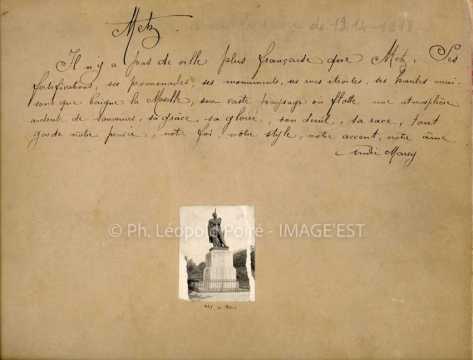 Metz
Il n'y a pas de ville plus française que Metz. Ses
fortifications, ses promenades, ses monuments, ses rues étroites, ses hautes mai-
sons que baigne la Moselle, son vaste paysage où flotte une atmosphère
ardente de, sa grâce, sa gloire, son deuil, sa race, tout
garde notre pensée, notre foi, notre style, notre accent, notre âme
© Ph. Léopold Poiré - IMAGE'EST